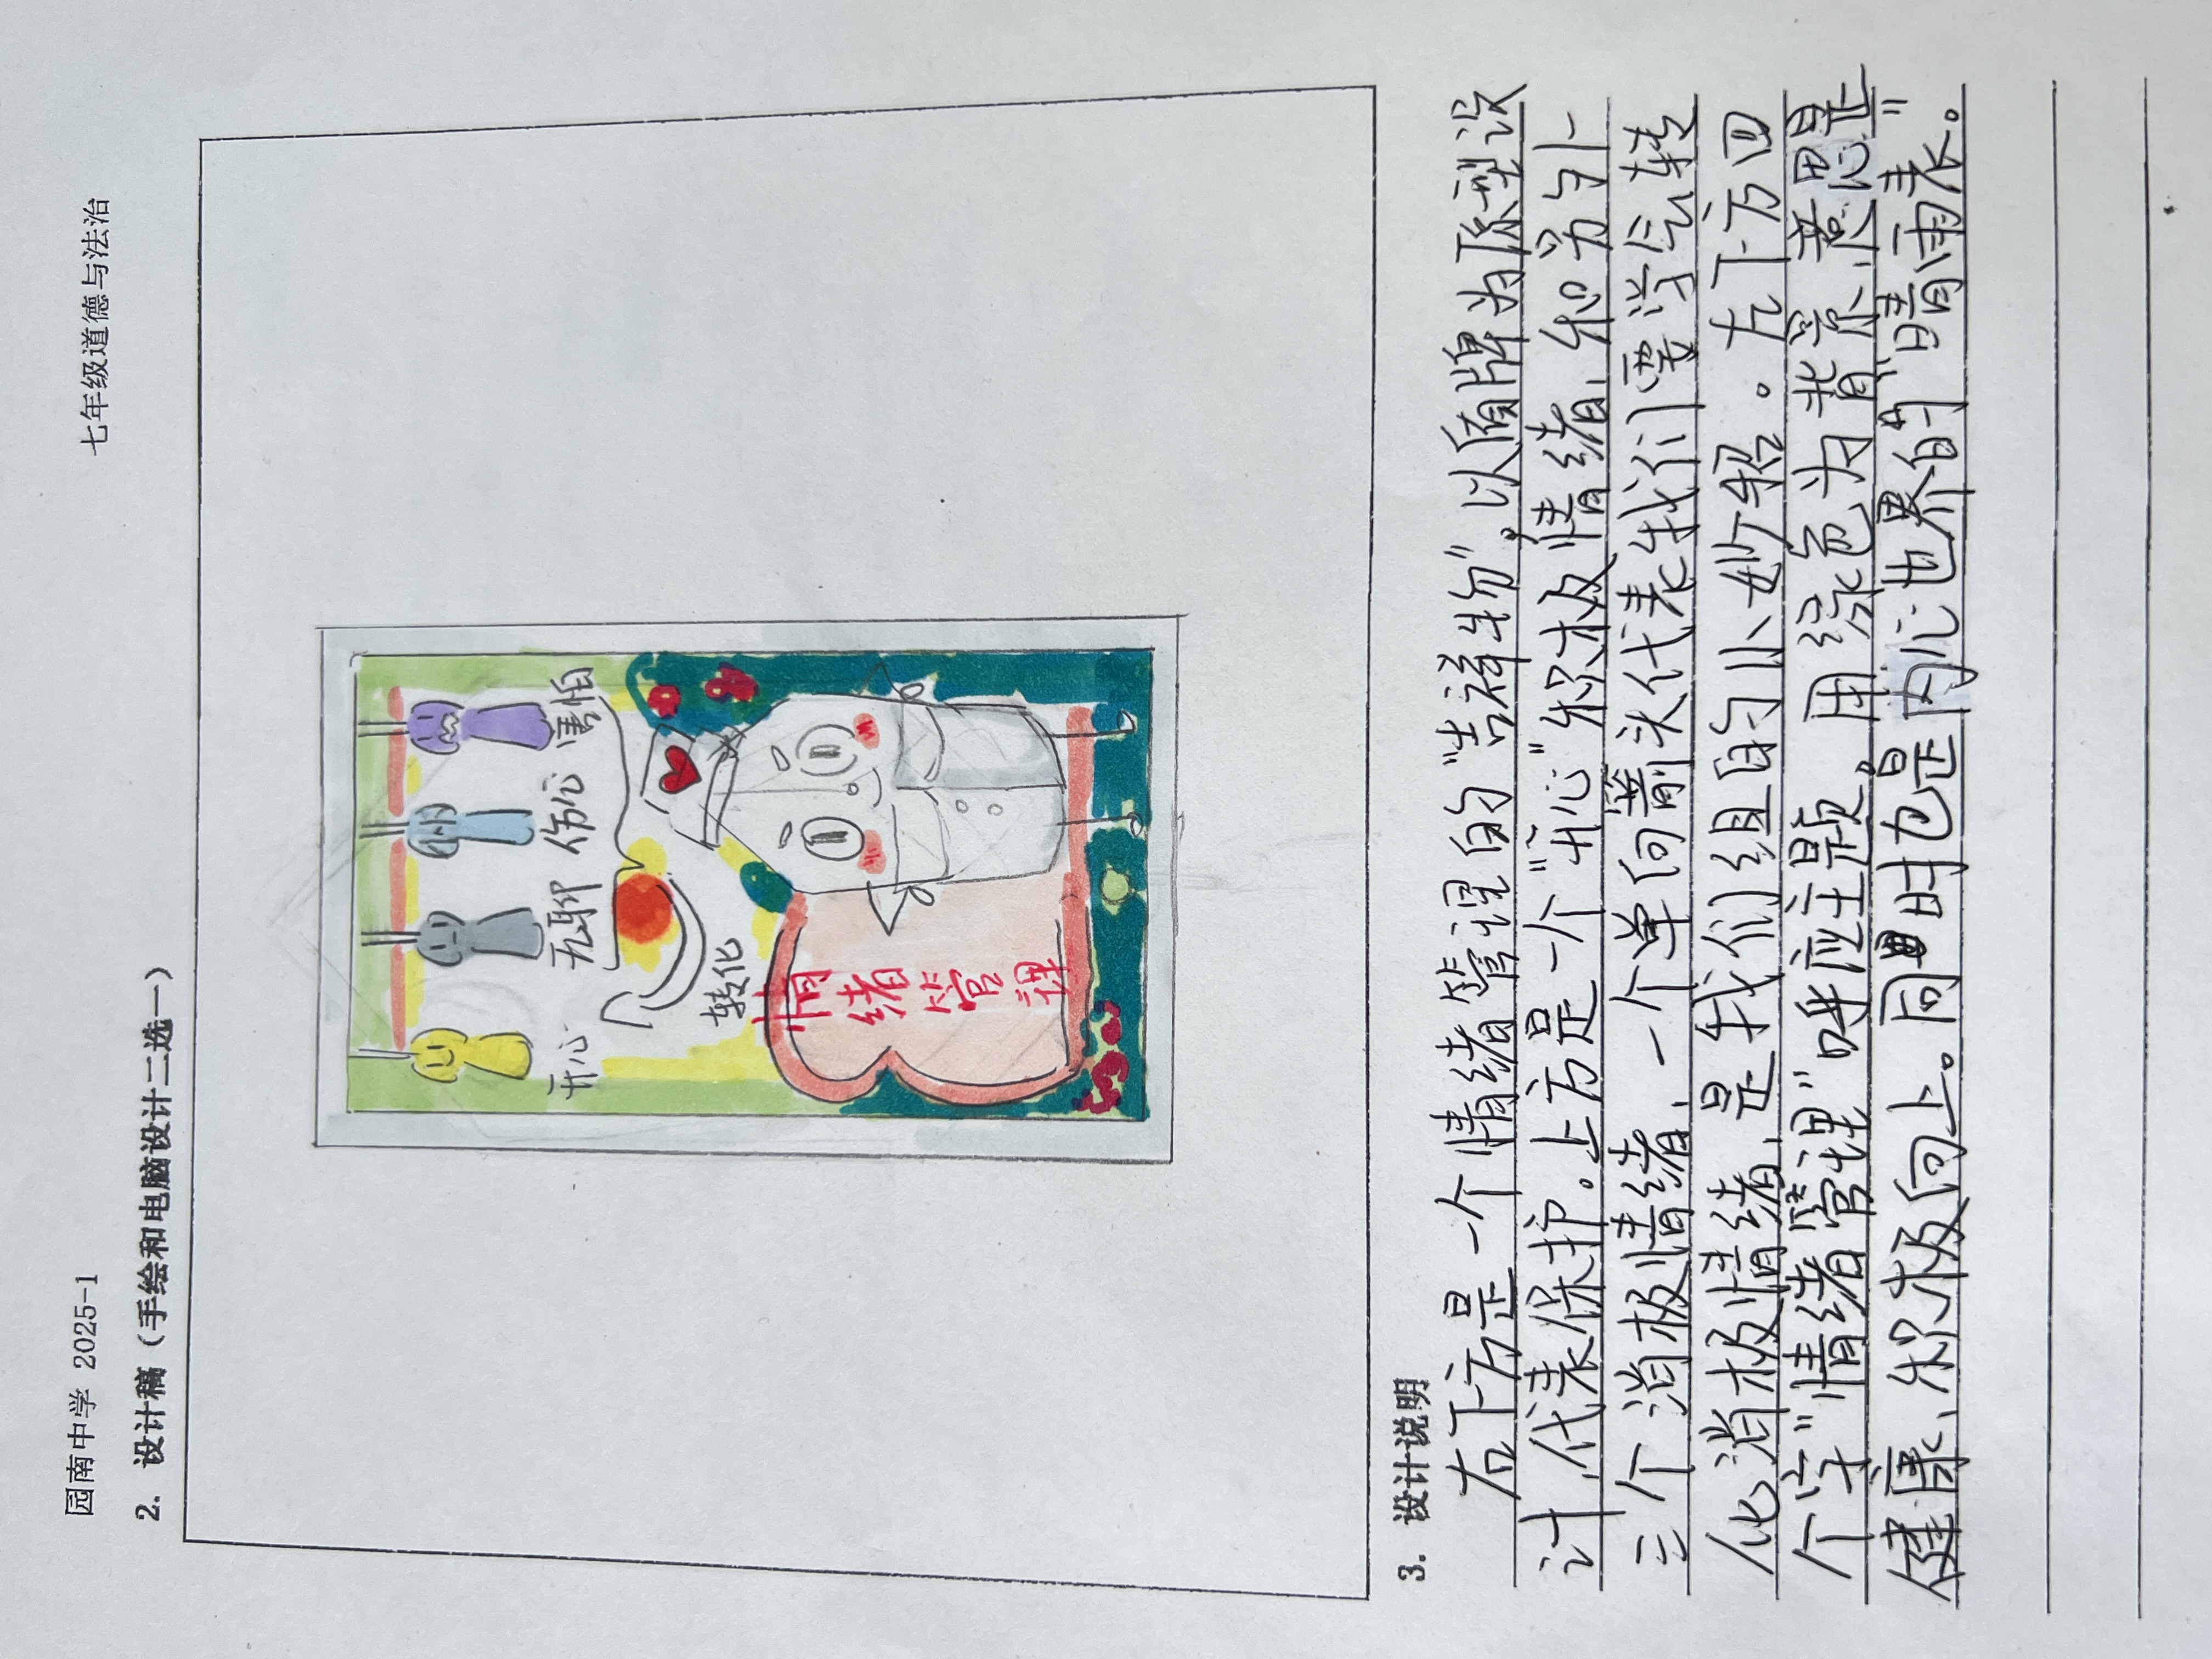 园南中学 2025-1 七年级道德与法治
2. 设计稿（手绘和电脑设计二选一）
开心 无聊 伤心 害怕
转化
情绪管理
3. 设计说明
右下方是一个情绪管理的“吉祥物”，以盾牌为原型设
计，代表保护。上方是一个“开心”积极情绪，和另外
三个消极情绪，一个单向箭头代表我们要学会转
化消极情绪，是我们组的小妙招。左下方四
个字“情绪管理”呼应主题。用绿色为背景，意思是
健康、积极向上。同时也是内心世界的“晴雨表”。